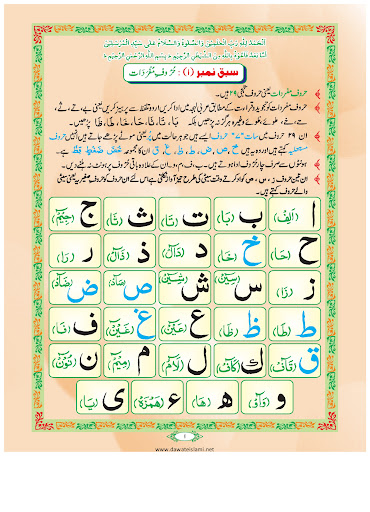 اَلْحَمْدُ لِلّٰهِ رَبِّ الْعٰلَمِیْنَ وَ الصَّلٰوةُ وَالسَّلَامُ عَلٰی سَیِّدِ الْمُرْسَلِیْنَ
اَمَّا بَعْدُ فَاَعُوْذُ بِاللّٰهِ مِنَ الشَّیْطٰنِ الرَّجِیْمِ بِسْمِ اللّٰهِ الرَّحْمٰنِ الرَّحِیْمِ
سبق نمبر (۱) : حُرُوفِ مُفْرَدَات
حروفِ مفردات یعنی حروفِ تہجی ۲۹ ہیں۔
حروفِ مفردات کو تجوید و قراءت کے مطابق عربی لہجہ میں ادا کریں اردو تلفظ سے پرہیز کریں یعنی بے، تے، ثے،
بَا، تَا، ثَا، حَا، خَا، طَا، ظَا پڑھیں۔
ان ۲۹ حروف میں سات "۷" حروف ایسے ہیں جو ہر حالت میں پُر یعنی موٹے پڑھے جاتے ہیں انہیں حروفِ
مستعلیہ کہتے ہیں اور وہ یہ ہیں خ، ص، ض، ط، ظ، غ، ق ان کا مجموعہ خُصَّ ضَغْطٍ قِظْ ہے۔
ہونٹوں سے صرف چار حروف ادا ہوتے ہیں۔ ب، ف، م، و۔ ان کے علاوہ باقی حروف پر ہونٹ نہ ہلنے دیں۔
ان تین حروف ز، س، ص کو ادا کرتے وقت سیٹی کی طرح تیز آواز نکلتی ہے اس لئے ان حروف کو حروفِ صفیریہ یعنی سیٹی
والے حروف کہتے ہیں۔
ا (اَلِفْ) ب (بَا) ت (تَا) ث (ثَا) ج (جِیْمْ)
ح (حَا) خ (خَا) د (دَالْ) ذ (ذَالْ) ر (رَا)
ز (زَا) س (سِیْنْ) ش (شِیْنْ) ص (صَادْ) ض (ضَادْ)
ط (طَا) ظ (ظَا) ع (عَیْنْ) غ (غَیْنْ) ف (فَا)
ق (قَافْ) ك (كَافْ) ل (لَامْ) م (مِیْمْ) ن (نُوْنْ)
و (وَاوْ) ه (هَا) ء (هَمْزَهْ) ی (یَا)
1
www.dawateislami.net